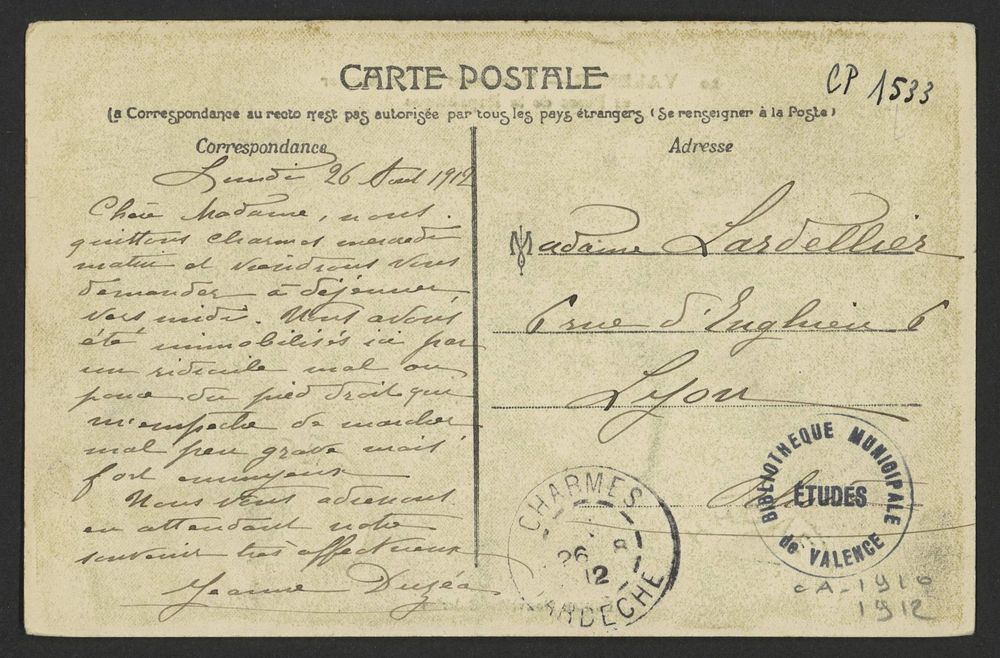 CARTE POSTALE
CP 1533
(La Correspondance au recto n'est pas autorisée par tous les pays étrangers (Se renseigner à la Poste)
Correspondance
Lundi 26 Août 1912
Chère Madame, nous
quittons Charmes mercredi
matin et viendrons vous
demander à déjeuner
vers midi. Nous avons
été immobilisés ici par
un ridicule mal au
pouce du pied droit qui
m'empêche de marcher
mal peu grave mais
fort ennuyeux
Nous vous adressons
en attendant notre
souvenir très affectueux
Jeanne Duzéa
Adresse
Madame Lardellier
6 rue d'Enghien 6
Lyon
CHARMES
26 8
12
ARDECHE
BIBLIOTHEQUE MUNICIPALE
ÉTUDES
de VALENCE
CA-1910
1912